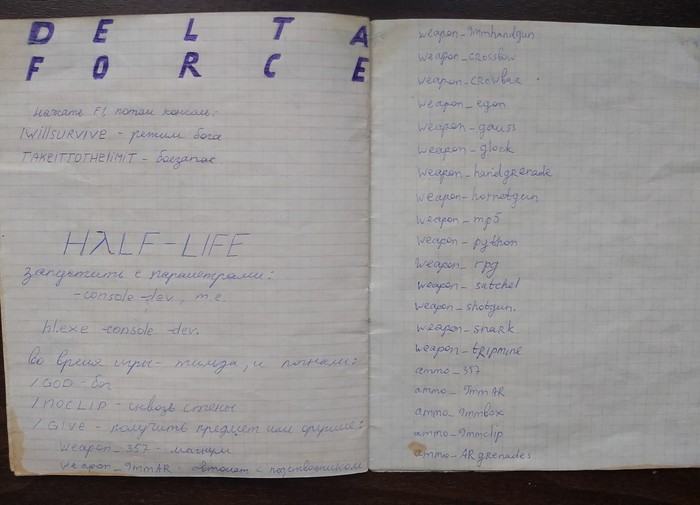 DELTA
FORCE
Нажать F1, потом консоль:
IWillSURVIVE - режим бога
TAKEITTOTHELIMIT - боезапас
HλLF-LIFE
запустить с параметрами:
-console -dev, т.е.
hl.exe -console -dev.
Во время игры - тильда, и погнали:
/GOD - бог
/NOCLIP - сквозь стены
/GIVE - получить предмет или оружие:
weapon_357 - магнум
weapon_9mmAR - автомат с подствольником
weapon_9mmhandgun
weapon_crossbow
weapon_crowbar
weapon_egon
weapon_gauss
weapon_glock
weapon_handgrenade
weapon_hornetgun
weapon_mp5
weapon_python
weapon_rpg
weapon_satchel
weapon_shotgun.
weapon_snark
weapon_tripmine
ammo_357
ammo_9mmAR
ammo_9mmbox
ammo_9mmclip
ammo_ARgrenades